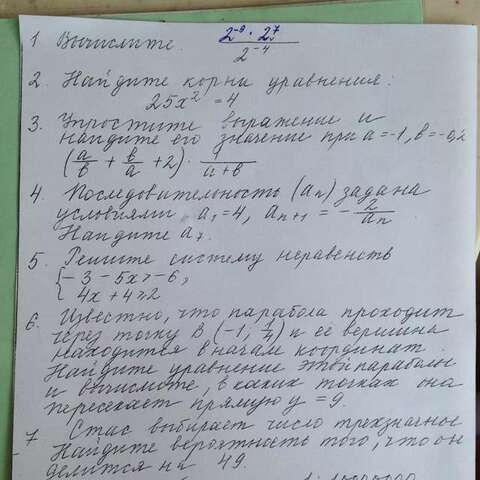 1 Вычислите. 2⁻⁹ · 2⁷ / 2⁻⁴
2. Найдите корни уравнения:
25x² = 4
3. Упростите выражение и
найдите его значение при a = -1, в = -0,2
(a/в + в/a + 2) · 1/(a+в)
4. Последовательность (aₙ) задана
условиями a₁ = 4, aₙ₊₁ = - 2/aₙ
Найдите a₇.
5. Решите систему неравенств
{ -3 - 5x > -6,
4x + 4 > 2
6. Известно, что парабола проходит
через точку B (-1; 1/4) и её вершина
находится в начал координат.
Найдите уравнение этой параболы
и вычислите, в каких точках она
пересекает прямую y = 9.
7 Стас выбирает число трехзначное
Найдите вероятность того, что он
делится на 49.